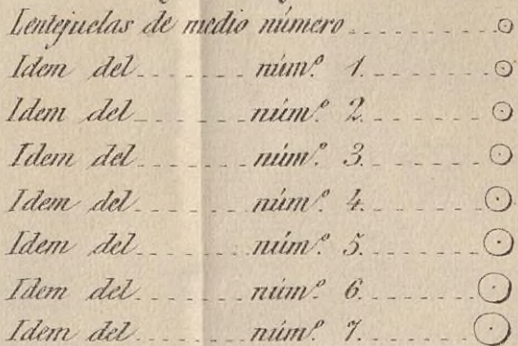 Lentejuelas de medio número
Idem del núm.º 1.
Idem del núm.º 2.
Idem del núm.º 3.
Idem del núm.º 4.
Idem del núm.º 5.
Idem del núm.º 6.
Idem del núm.º 7.